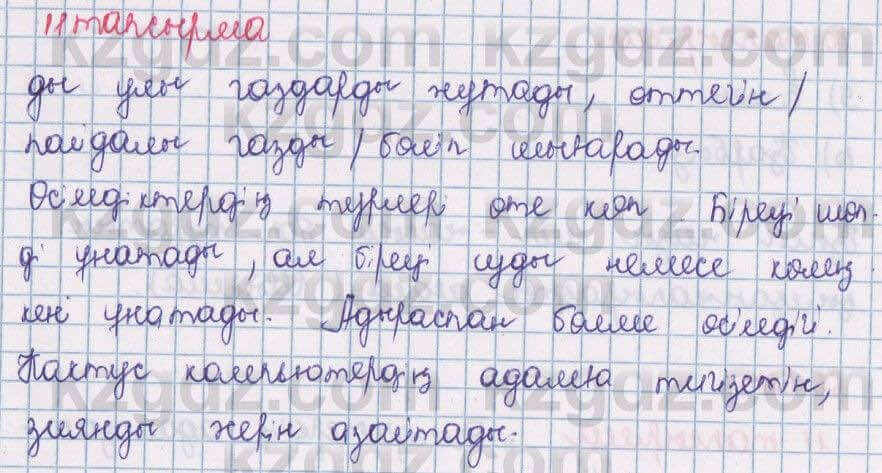 11 тапсырма
ды улы газдарды жутады, оттегін /
пайдалы газды / бөліп шығарады.
Өсімдіктердің түрлері өте көп. Біреуі шөл-
ді ұнатады, ал біреуі суды немесе көлең
кені ұнатады. Адыраспан бөлме өсімдігі.
Кактус компьютердің адамға тигізетін,
зиянды жерін азайтады.